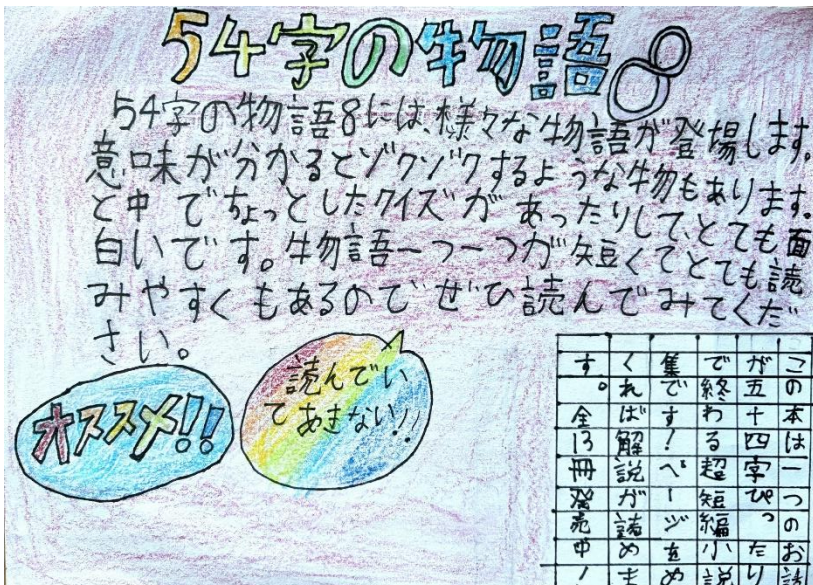 54字の物語8
54字の物語8には、様々な物語が登場します。
意味が分かるとゾクゾクするような物もあります。
と中でちょっとしたクイズがあったりして、とても面
白いです。物語一つ一つが短くてとても読
みやすくもあるのでぜひ読んでみてくだ
さい。
オススメ!!
読んでい
てあきない!!
この本は一つのお話
が五十四字ぴったり
で終わる超短編小説
集です!ページをめ
くれば解説が読めま
す。全13冊発売中!